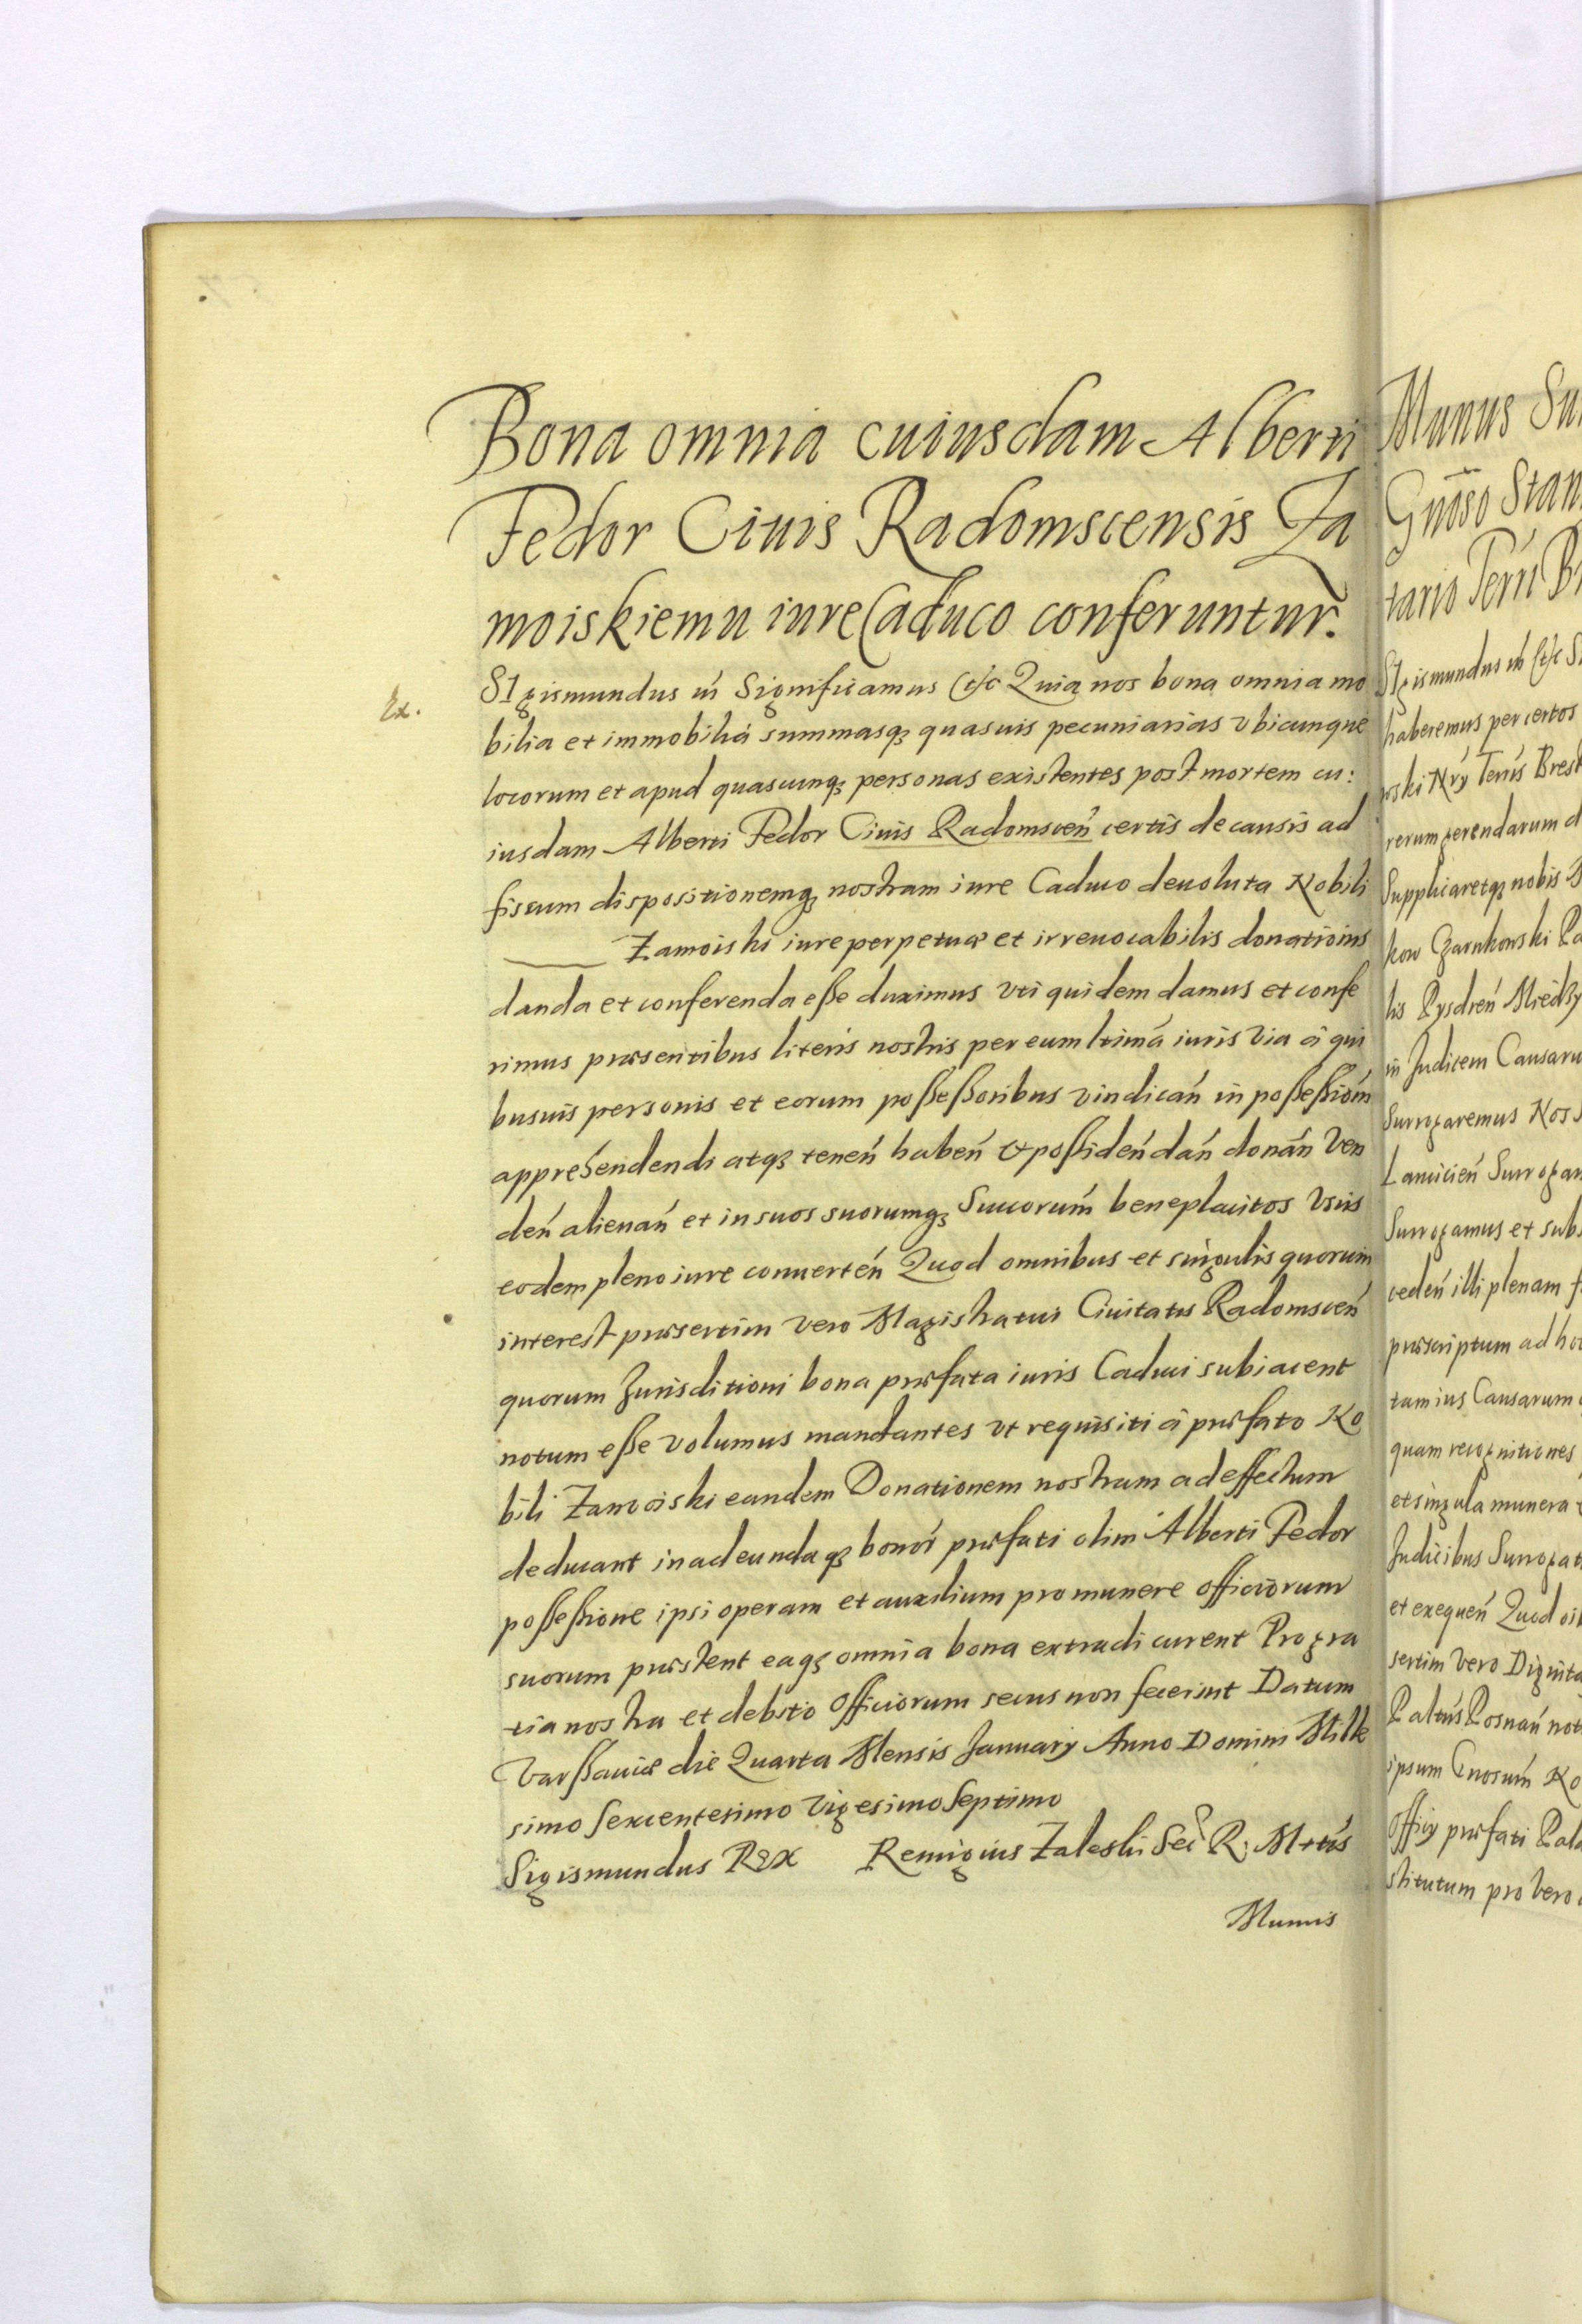 Bona omnia cuiusdam Alberti
Fedor Ciuis Radomscensis Za
moiskiemu iure Caduco conferuntur.
Ex.
SIgismundus etc Significamus etc Quia nos bona omnia mo
bilia et immobilia summasqꝫ quasuis pecuniarias vbicunque
locorum et apud quascunqꝫ personas existentes post mortem cu:
iusdam Alberti Fedor Ciuis Radomscen̄ certis de causis ad
fiscum dispositionemqꝫ nostram iure Caduco deuoluta Nobili
Zamoiski iure perpetuæ et irreuocabilis donationis
danda et conferenda eſse duximus vti quidem damus et confe
rimus præsentibus literis nostris per eum ltimā iuris via à qui
busuis personis et eorum poſseſsoribus vindicań in poſseſsiom̄
apprehendendi atqꝫ tenen̄ haben̄ & poſsiden̄ dan̄ donan̄ ven
den̄ alienan̄ et in suos suorumqꝫ Succorum̄ beneplacitos vsus
eodem pleno iure conuerten̄ Quod omnibus et singulis quorum
interest præsertim vero Magistratui Ciuitatis Radomscen̄
quorum Jurisditioni bona præfata iuris Caduci subiacent
notum eſse volumus mandantes vt requisiti à præfato No
bili Zamoiski eandem Donationem nostram ad effectum
deducant in adeundaqꝫ bonor̄ præfati olim Alberti Fedor
poſseſsione ipsi operam et auxilium pro munere officiorum
suorum præstent eaqꝫ omnia bona extradi curent Pro gra
tia nostra et debito Officiorum secus non fecerint Datum
Varſsauiæ die Quarta Mensis January Anno Domini Mille
simo Sexcentesimo Vigesimo Septimo
Sigismundus REX Remigius Zaleski Sec̄ R. Mttis
Munus
Munus Su
Gnoso Stan
tario Terri B
SIgismundus etc etc S
haberemus per certos
wski Nrÿ Terris Brest
rerum gerendarum d
Supplicaretqꝫ nobis
kow Czarnkowski Pa
lis Pysdren̄ Miedzy
in Judicem Causaru
Surrogaremus Nos
Lanicien̄ Surrogan
Surrogamus et sub
ceden̄ illi plenam f
præscriptum ad ho
tum ius Causarum
quam recognitiones
et singula munera
Judicibus Surrogat
et exequen̄ Quod oi
sertim vero Dignita
Paltus Posnan̄ not
ipsum Gnosum No
Officy præfati Pala
stitutum pro vero